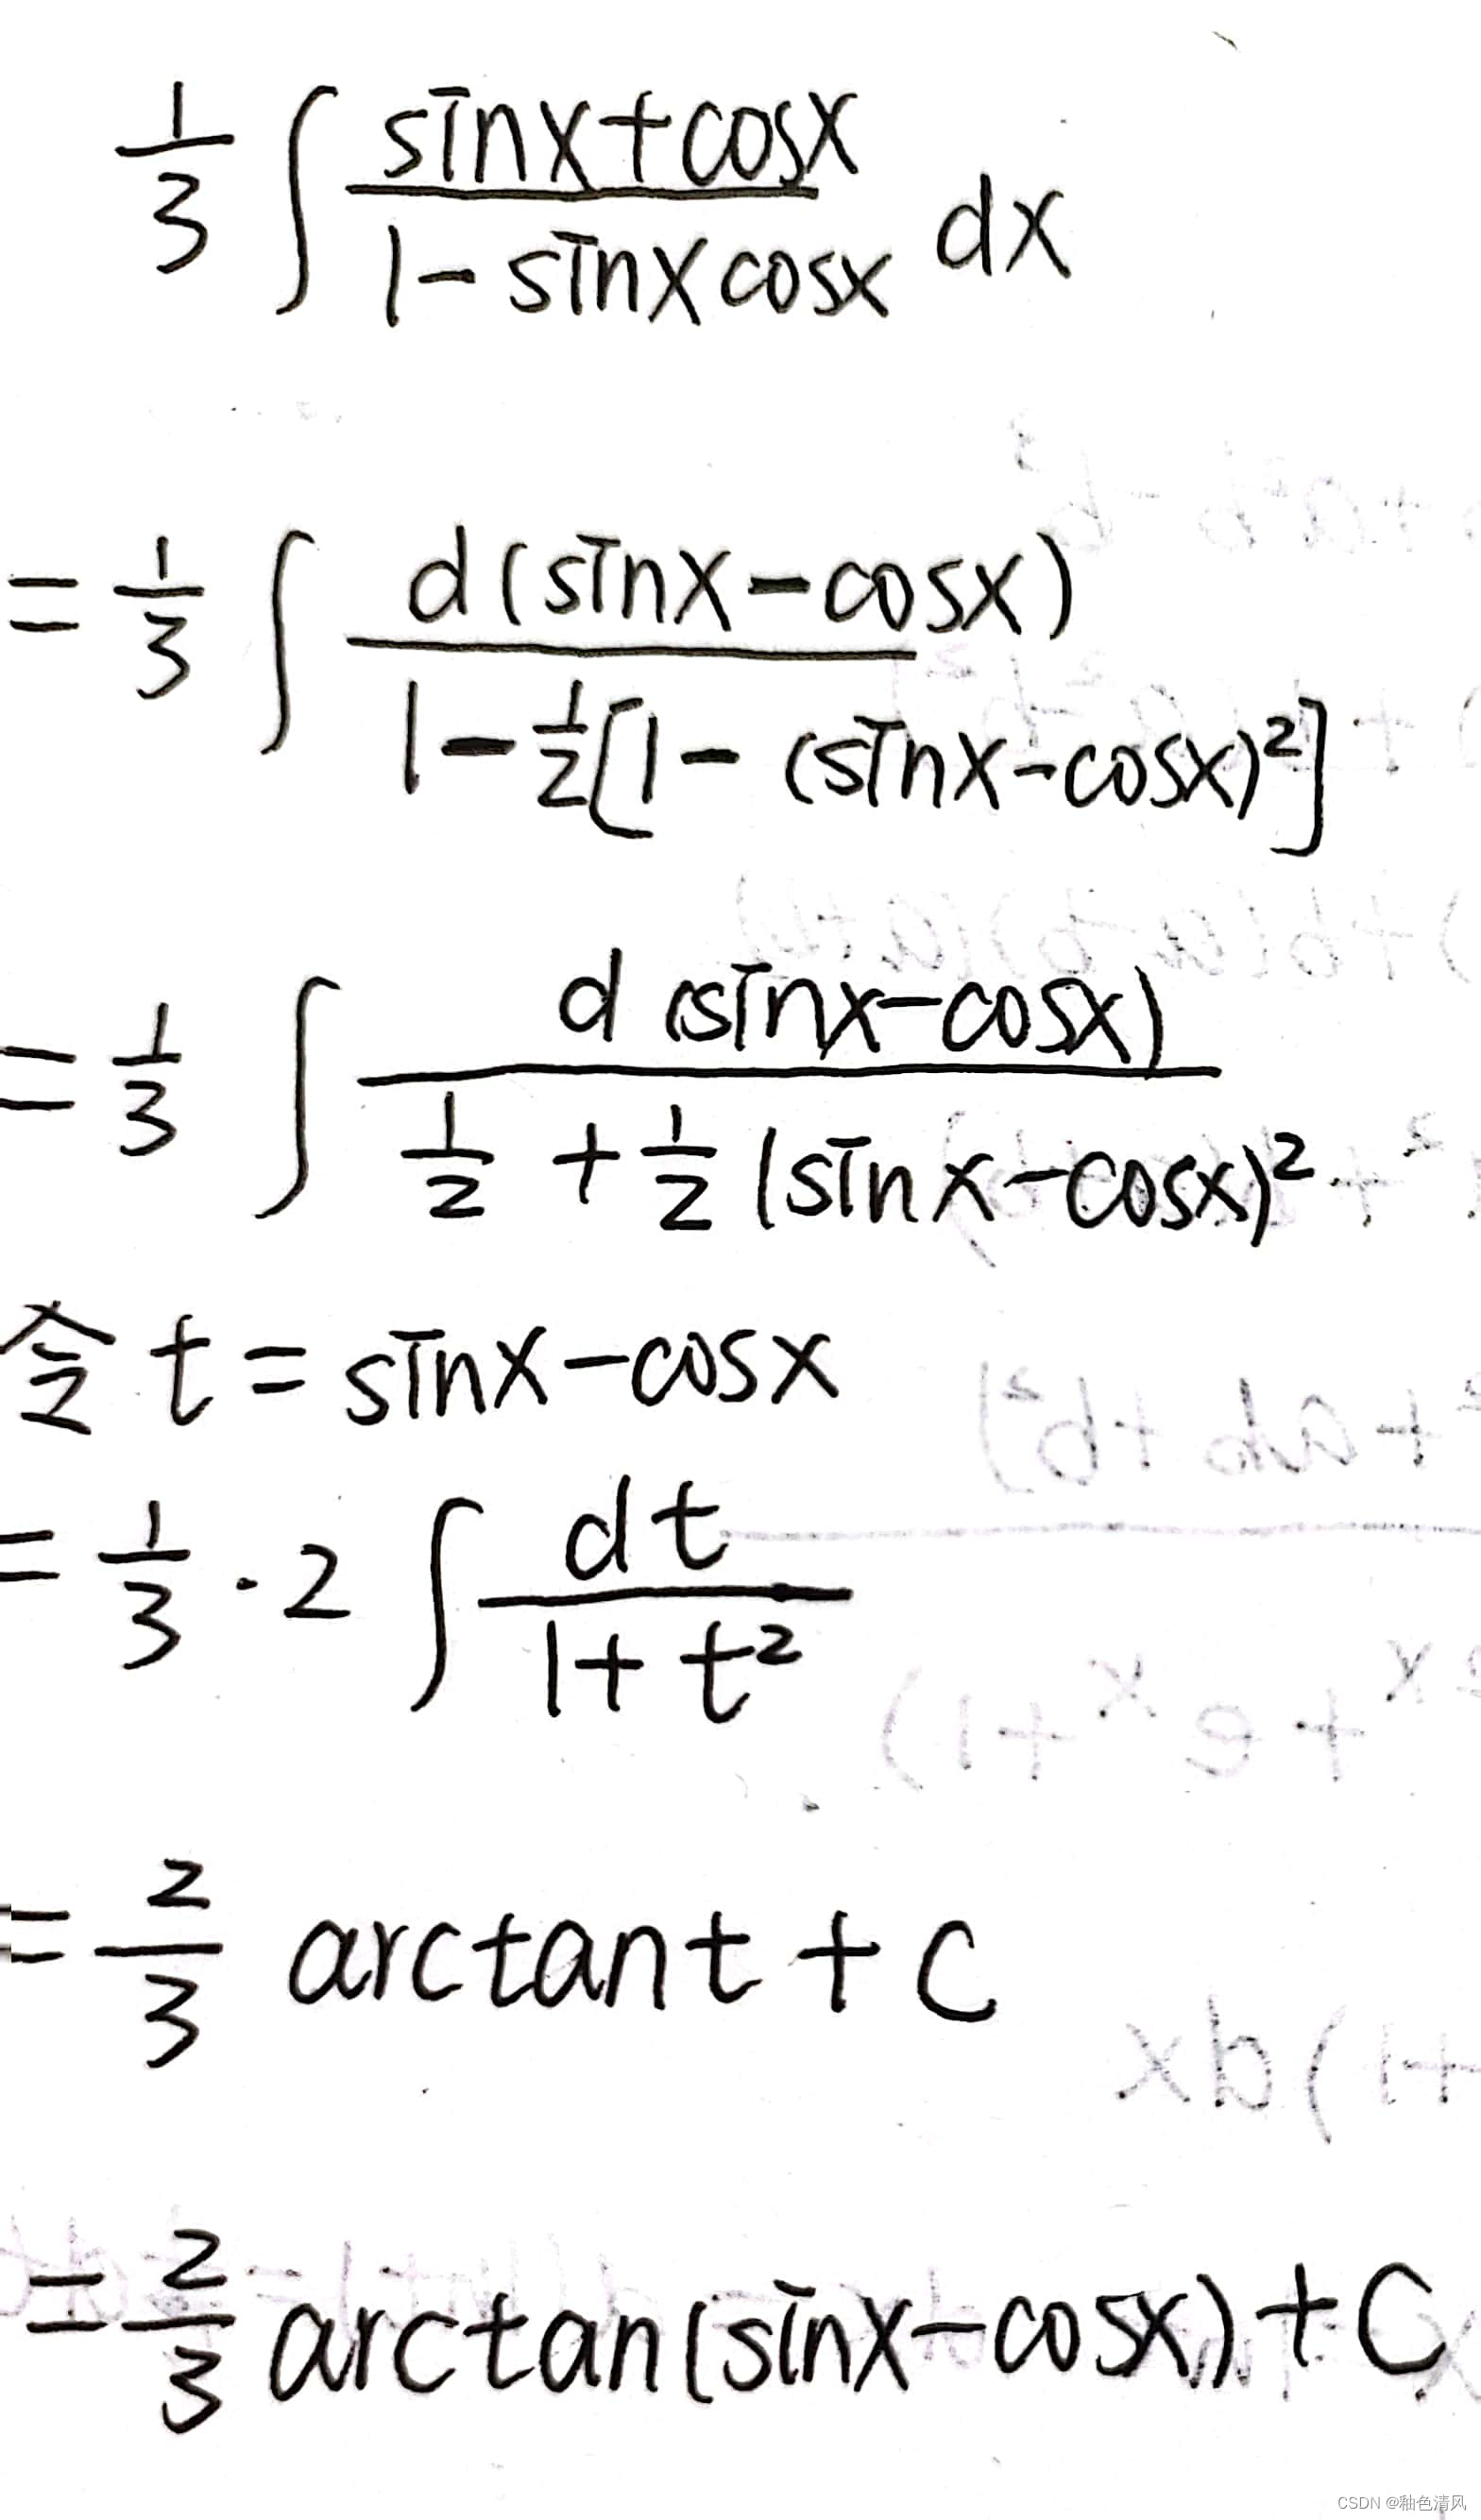 1/3 ∫ (sinx+cosx)/(1-sinxcosx) dx
= 1/3 ∫ d(sinx-cosx)/(1-1/2[1-(sinx-cosx)²])
= 1/3 ∫ d(sinx-cosx)/(1/2+1/2(sinx-cosx)²)
令 t=sinx-cosx
= 1/3·2 ∫ dt/(1+t²)
= 2/3 arctant+C
= 2/3 arctan(sinx-cosx)+C
CSDN @釉色清风